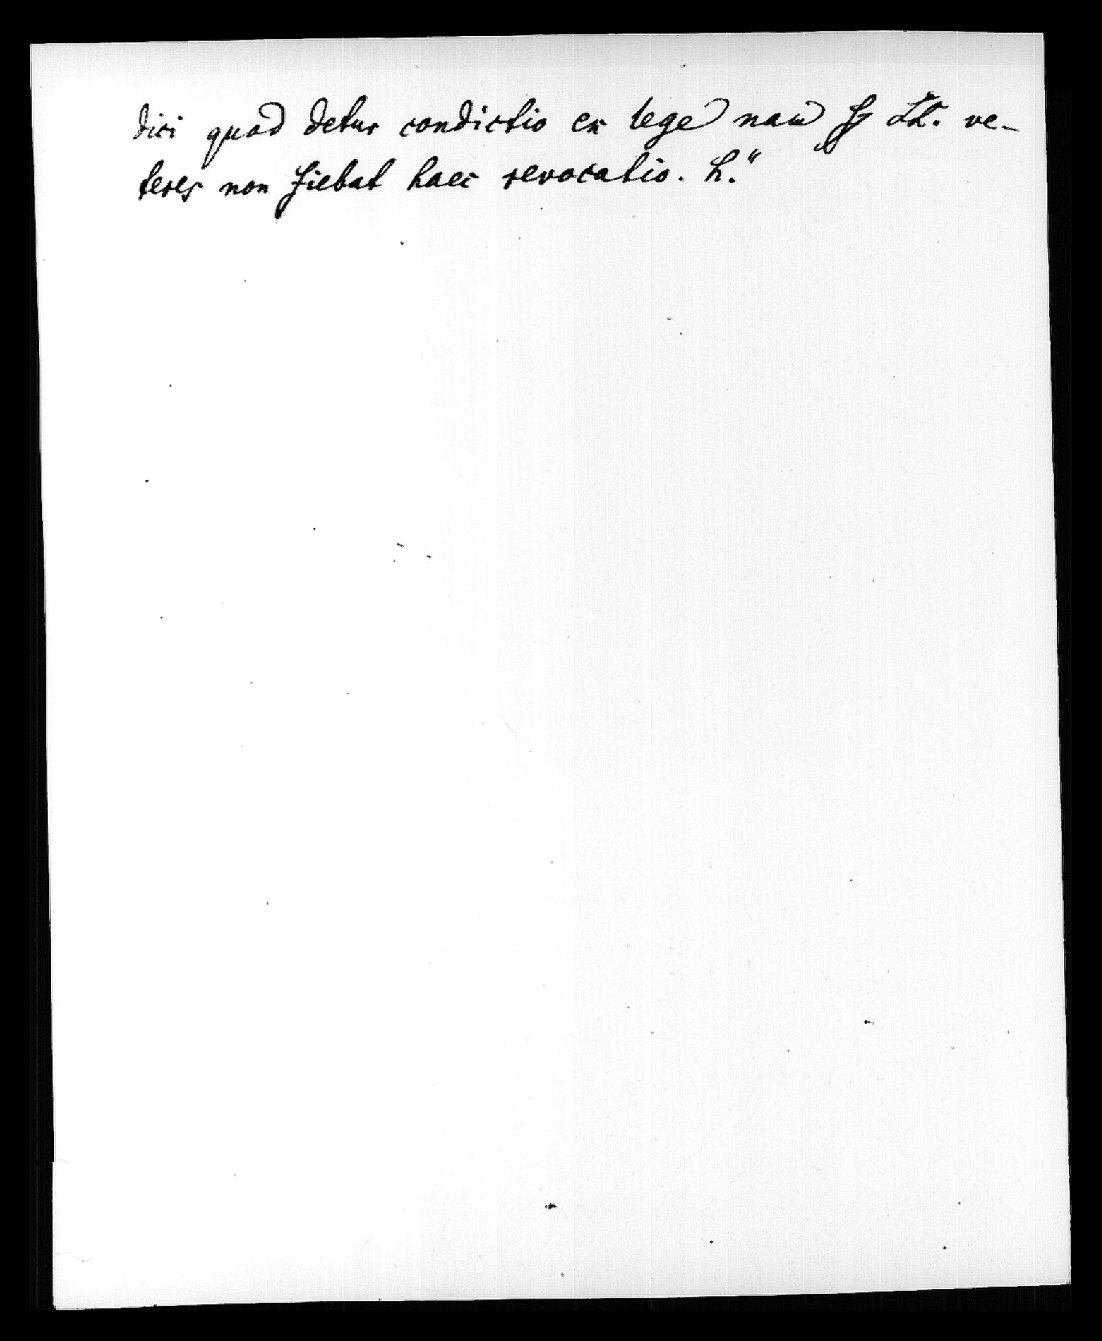 dici quod detur condictio ex lege nam LL. ve-
teres non fiebat haec revocatio. h."